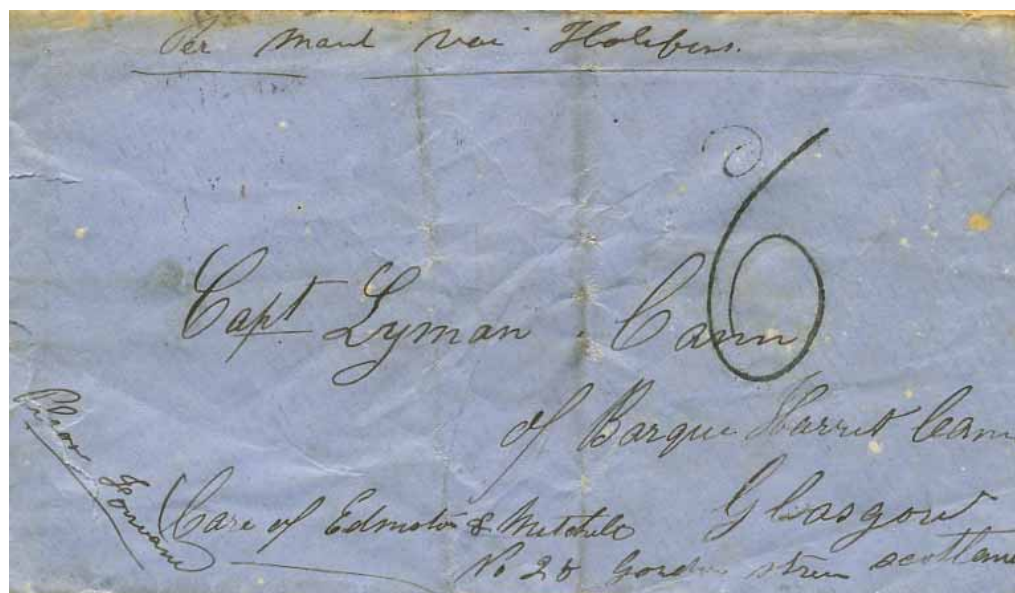 Per Mail via Halifax.
6
Capt Lyman Cann
of Barque Harriet Cann
Please Forward
Care of Edmiston & Mitchells Glasgow
No 20 Gordon street Scotland